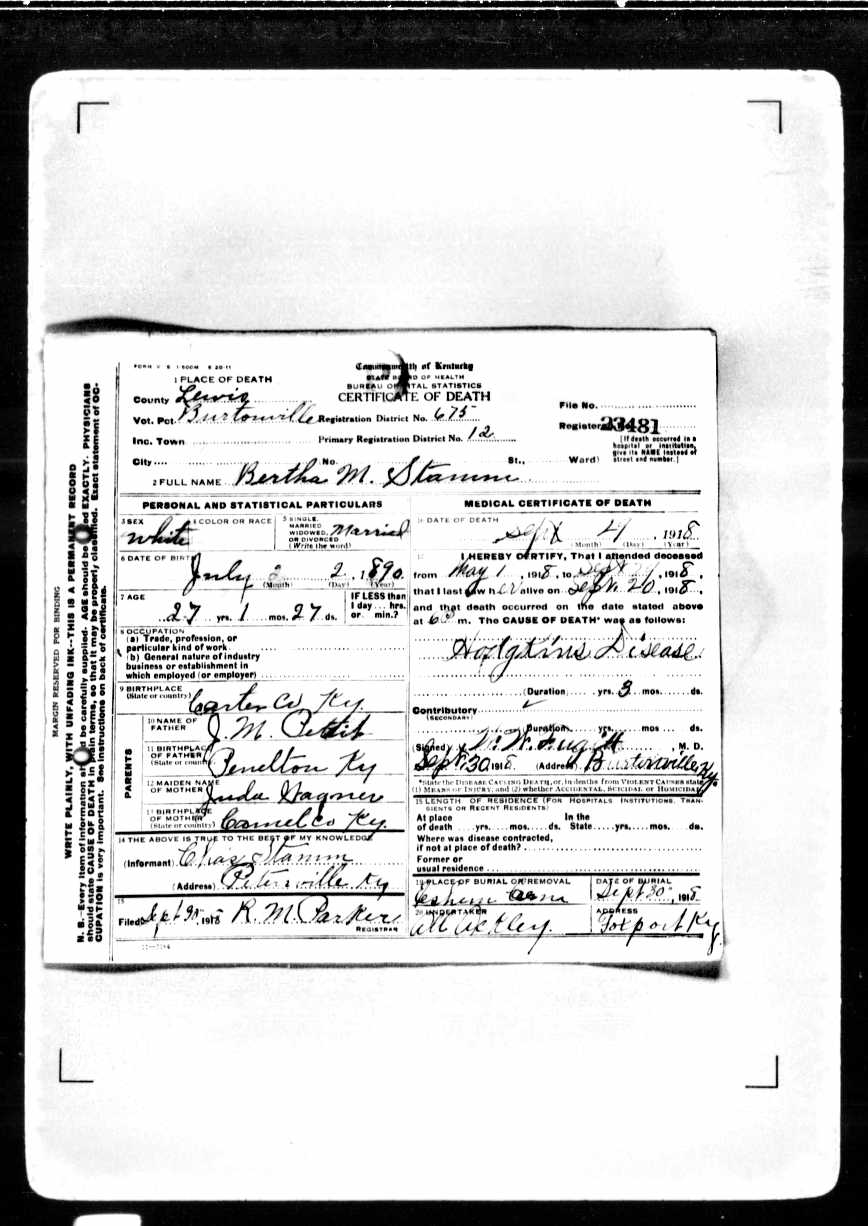 FORM V. S. 1-500M 8 20-11
Commonwealth of Kentucky
STATE BOARD OF HEALTH
BUREAU OF VITAL STATISTICS
CERTIFICATE OF DEATH
1 PLACE OF DEATH
County Lewis
Vot. Pct. Burtonville Registration District No. 675
File No.
Inc. Town Primary Registration District No. 12
Registered No. 23481
City No. St., Ward)
[If death occurred in a hospital or institution, give its NAME instead of street and number.]
2 FULL NAME Bertha M. Stamm
PERSONAL AND STATISTICAL PARTICULARS
3 SEX 4 COLOR OR RACE white
5 SINGLE, MARRIED WIDOWED, OR DIVORCED (Write the word) Married
6 DATE OF BIRTH July 2, 1890.
(Month) (Day) (Year)
7 AGE
27 yrs. 1 mos. 27 ds.
IF LESS than 1 day... hrs. or min.?
8 OCCUPATION
(a) Trade, profession, or
particular kind of work
(b) General nature of industry
business or establishment in
which employed (or employer)
9 BIRTHPLACE
(State or country) Carter Co Ky.
PARENTS
10 NAME OF FATHER J. M. Pettit
11 BIRTHPLACE OF FATHER (State or country) Penelton Ky
12 MAIDEN NAME OF MOTHER Juda Wagner
13 BIRTHPLACE OF MOTHER (State or country) Camel co Ky.
14 THE ABOVE IS TRUE TO THE BEST OF MY KNOWLEDGE
(Informant) Chas Stamm
(Address) Petersville Ky
15
Filed Sept 30, 1918 R. M. Parker
REGISTRAR
MEDICAL CERTIFICATE OF DEATH
16 DATE OF DEATH
Sept 1918
(Month) (Day) (Year)
17 I HEREBY CERTIFY, That I attended deceased
from May 1, 1918, to Sept, 1918,
that I last saw her alive on Sept. 20, 1918,
and that death occurred on the date stated above
at 6 m. The CAUSE OF DEATH* was as follows:
Hodgkins Disease
(Duration) yrs. 3 mos. ds.
Contributory
(SECONDARY)
(Duration) yrs. mos. ds.
(Signed) M. D.
Sept. 30 1918 (Address) Burtonville Ky.
*State the DISEASE CAUSING DEATH, or, in deaths from VIOLENT CAUSES state
(1) MEANS OF INJURY; and (2) whether ACCIDENTAL, SUICIDAL or HOMICIDAL
18 LENGTH OF RESIDENCE (FOR HOSPITALS INSTITUTIONS, TRANSIENTS OR RECENT RESIDENTS)
At place In the
of death yrs. mos. ds. State yrs. mos. ds.
Where was disease contracted,
if not at place of death?
Former or
usual residence
19 PLACE OF BURIAL OR REMOVAL
DATE OF BURIAL
Sept 30, 1918
20 UNDERTAKER
ADDRESS
Foxport Ky
MARGIN RESERVED FOR BINDING
WRITE PLAINLY, WITH UNFADING INK--THIS IS A PERMANENT RECORD
N. B.--Every item of information should be carefully supplied. AGE should be stated EXACTLY. PHYSICIANS
should state CAUSE OF DEATH in plain terms, so that it may be properly classified. Exact statement of OC-
CUPATION is very important. See instructions on back of certificate.